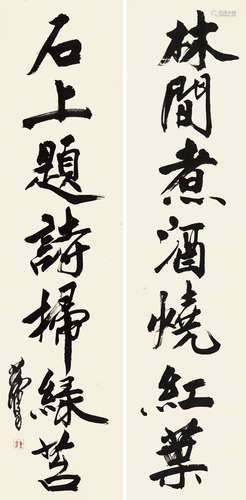 林間煮酒燒紅葉
石上題詩掃綠苔